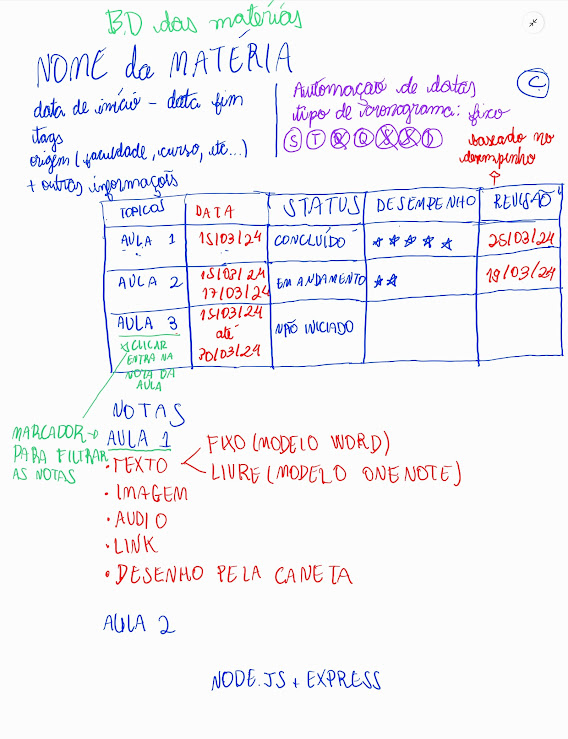 BD das matérias
NOME da MATÉRIA
data de início - data fim
tags
origem (faculdade, curso, etc...)
+ outras informações
Automação de datas
tipo de cronograma: fixo
S T Q Q S S D
C
baseado no
desempenho
TOPICOS DATA STATUS DESEMPENHO REVISÃO
AULA 1 15/03/24 CONCLUÍDO ☆☆☆☆☆ 25/03/24
AULA 2 15/03/24 17/03/24 EM ANDAMENTO ☆☆ 19/03/24
AULA 3 15/03/24 até 20/03/24 NÃO INICIADO
CLICAR
ENTRA NA
NOTA DA
AULA
NOTAS
MARCADOR →
PARA FILTRAR
AS NOTAS
AULA 1
• TEXTO
FIXO (MODELO WORD)
LIVRE (MODELO ONENOTE)
• IMAGEM
• AUDIO
• LINK
• DESENHO PELA CANETA
AULA 2
NODE.JS + EXPRESS